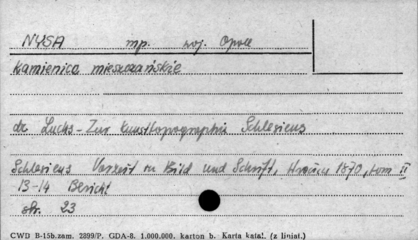 NYSA mp. woj. Opole
Kamienice mieszczańskie
dr Luchs - Zur Kunsttopographie Schlesiens
Schlesiens Vorzeit in Bild und Schrift, 1870, tom II
13-14 Bericht
str. 23
CWD B-15b. zam. 2899/P. GDA-8. 1.000.000. karton b. Karta katal. (z liniat.)